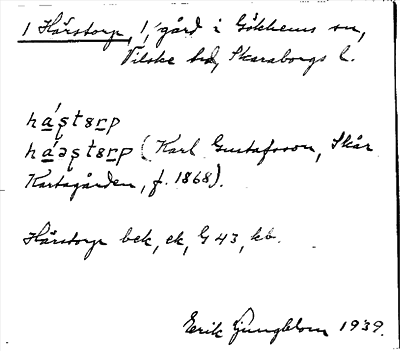 1 Hårstorp, 1/ gård i Gökhems sn,
Vilske hd, Skaraborgs l.
há̱ʂtɘrp
há̱əʂtɘrp (Karl Gustafsson, Skår
Karlsgården, f. 1868).
Hårstorp bek, ek, G 43, kb.
Erik Ljungblom 1939.